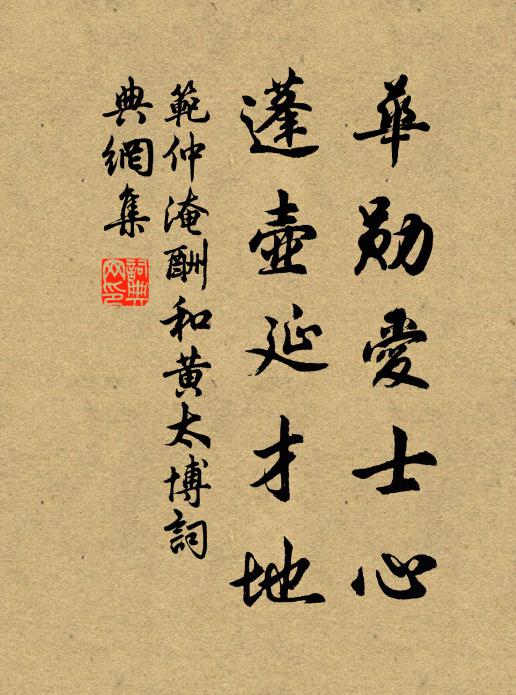 華勛愛士心
蓬壺延才地
範仲淹酬和黄太博詞
典網集
詞典
网印